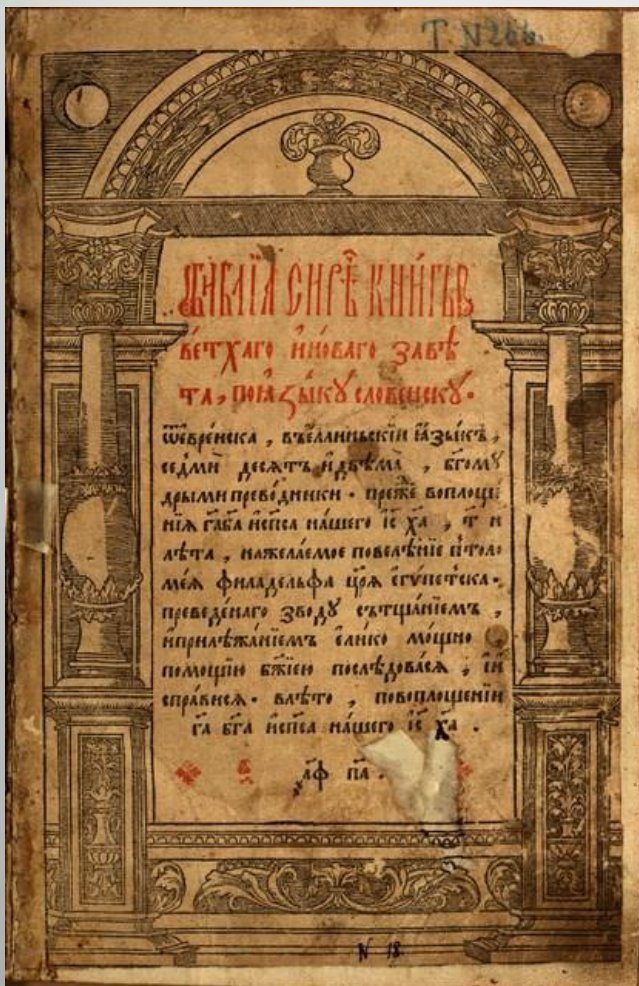 Т. N 266.
Би́блїѧ сирѣ́ч кни́гы
ветхаго и҆ но́ваго завѣ
та, по ꙗ҆зы́кꙋ слове́нскꙋ.
ѿ е҆вре́йска, въ е҆́ллиньскїи ꙗ҆зы́къ,
се́дмь деся́тъ и҆ двѣма̀, бг҃омꙋ́
дрыми прево́дники. пре́же воплоще́
нїѧ гда̀ бга и҆ сп҃са на́шего і҆с ха, т҃ и
лѣ́та, на жела́емое повелѣ́нїе пътоло
ме́ѧ филаде́льфа цр҃ѧ е҆гѵ́петска.
преведе́наго зво́дꙋ съ тща́нїемъ,
и҆ прилѣжа́нїемъ е҆ли́ко мо́щно
по́мощїю бж҃їею послѣ́довасѧ, и҆
спра́висѧ. в лѣ́то, по воплоще́нїи
га бг҃а и҆ сп҃са на́шего і҆с ха.
а҂ф па.
N 18.